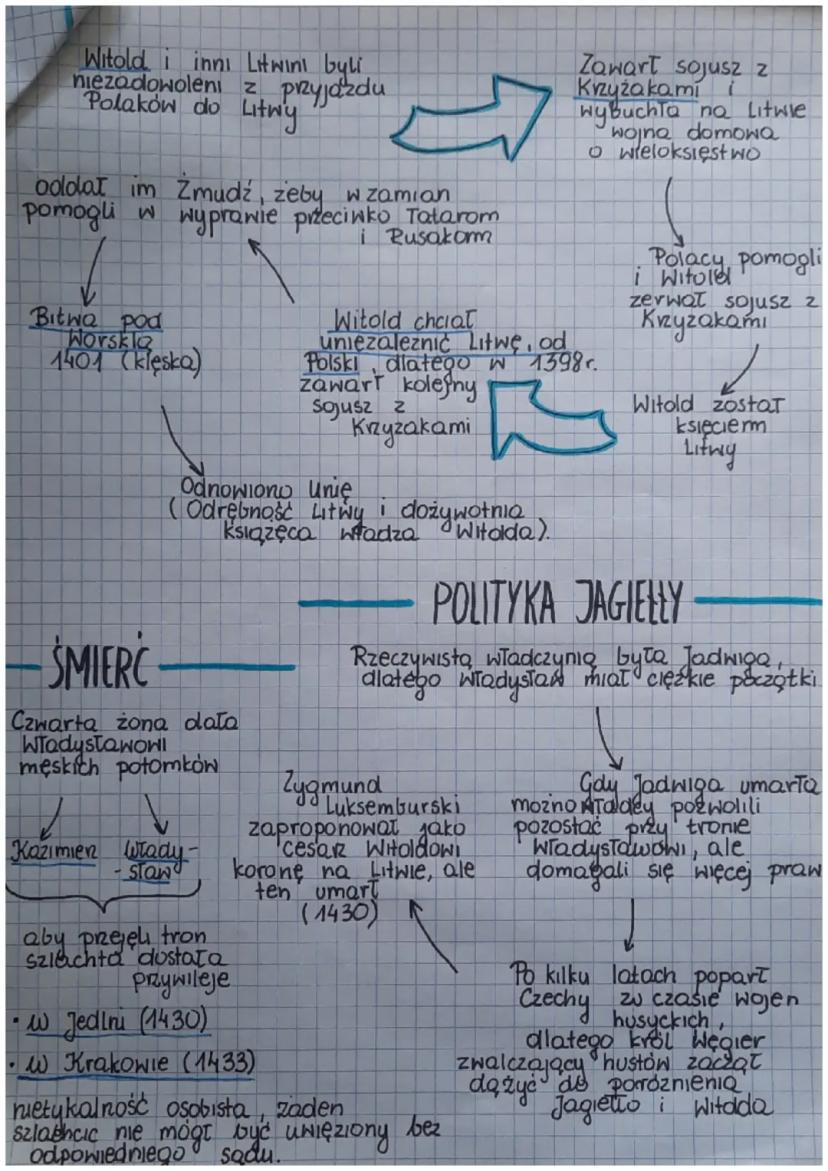 Witold i inni Litwini byli
niezadowoleni z przyjazdu
Polaków do Litwy
Zawarł sojusz z
Krzyżakami i
wybuchła na Litwie
wojna domowa
o wieloksięstwo
Polacy pomogli
i Witold
zerwał sojusz z
Krzyżakami
Witold został
księciem
Litwy
Witold chciał
uniezależnić Litwę, od
Polski, dlatego w 1398r.
zawarł kolejny
sojusz z
Krzyżakami
oddał im Żmudź, żeby w zamian
pomogli w wyprawie przeciwko Tatarom
i Rusakom
Bitwa pod
Worsklą
1401 (klęska)
Odnowiono Unię
(Odrębność Litwy i dożywotnia
książęca władza Witolda).
POLITYKA JAGIEŁŁY
Rzeczywistą władczynią była Jadwiga,
dlatego Władysław miał ciężkie początki
Gdy Jadwiga umarła
możnowładcy pozwolili
pozostać przy tronie
Władysławowi, ale
domagali się więcej praw
Po kilku latach poparł
Czechy w czasie wojen
husyckich,
dlatego król Węgier
zwalczający hustów zaczął
dążyć do poróżnienia
Jagiełło i Witolda
Zygmund
Luksemburski
zaproponował jako
cesarz Witoldowi
koronę na Litwie, ale
ten umarł
(1430)
ŚMIERĆ
Czwarta żona dała
Władysławowi
męskich potomków
Kazimierz
Włady-
-sław
aby przejęli tron
szlachta dostała
przywileje
• w Jedlni (1430)
• w Krakowie (1433)
nietykalność osobista, żaden
szlachcic nie mógł być uwięziony bez
odpowiedniego sądu.